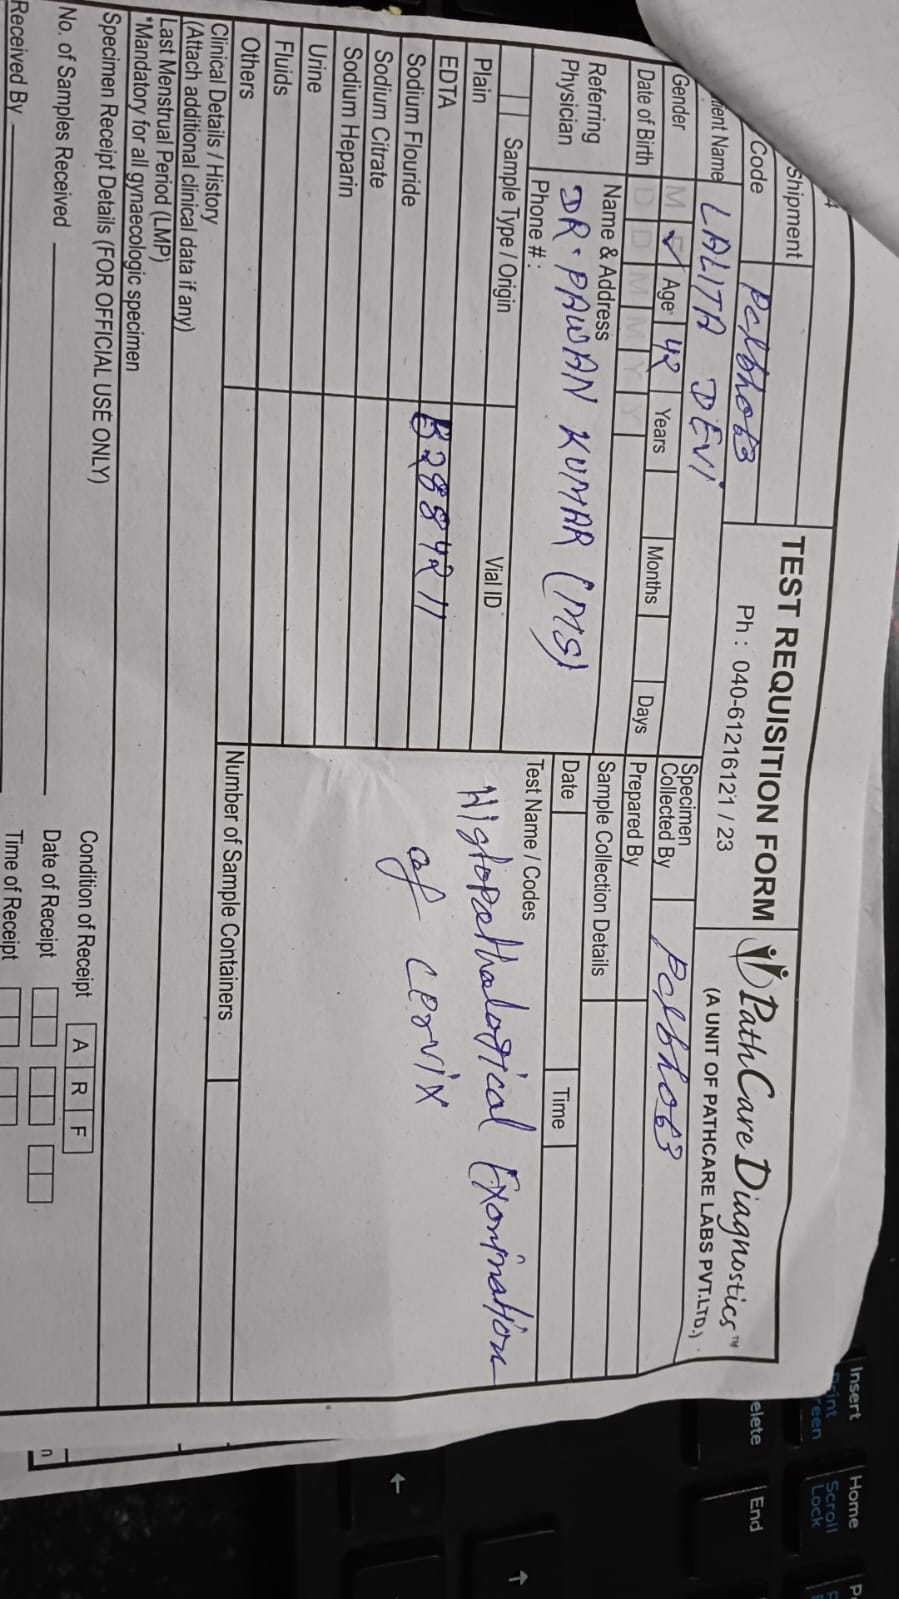 Shipment
Code Pclbho63
TEST REQUISITION FORM
Ph : 040-61216121 / 23
PathCare Diagnostics™
(A UNIT OF PATHCARE LABS PVT.LTD.)
tient Name LALITA DEVI
Gender M ✓ Age 42 Years Months Days
Specimen Collected By Pclbho63
Date of Birth D D M M Y Y
Prepared By
Referring Physician
Name & Address
DR. PAWAN KUMAR (MS)
Phone # :
Sample Collection Details
Date Time
Sample Type / Origin Vial ID
Test Name / Codes
Histopathological Examination
of Cervix
Plain
EDTA
Sodium Flouride B28884211
Sodium Citrate
Sodium Heparin
Urine
Fluids
Others
Number of Sample Containers
Clinical Details / History
(Attach additional clinical data if any)
Last Menstrual Period (LMP)
*Mandatory for all gynaecologic specimen
Specimen Receipt Details (FOR OFFICIAL USE ONLY)
Condition of Receipt A R F
No. of Samples Received
Date of Receipt
Received By
Time of Receipt
Insert
Home
Scroll
Lock
End